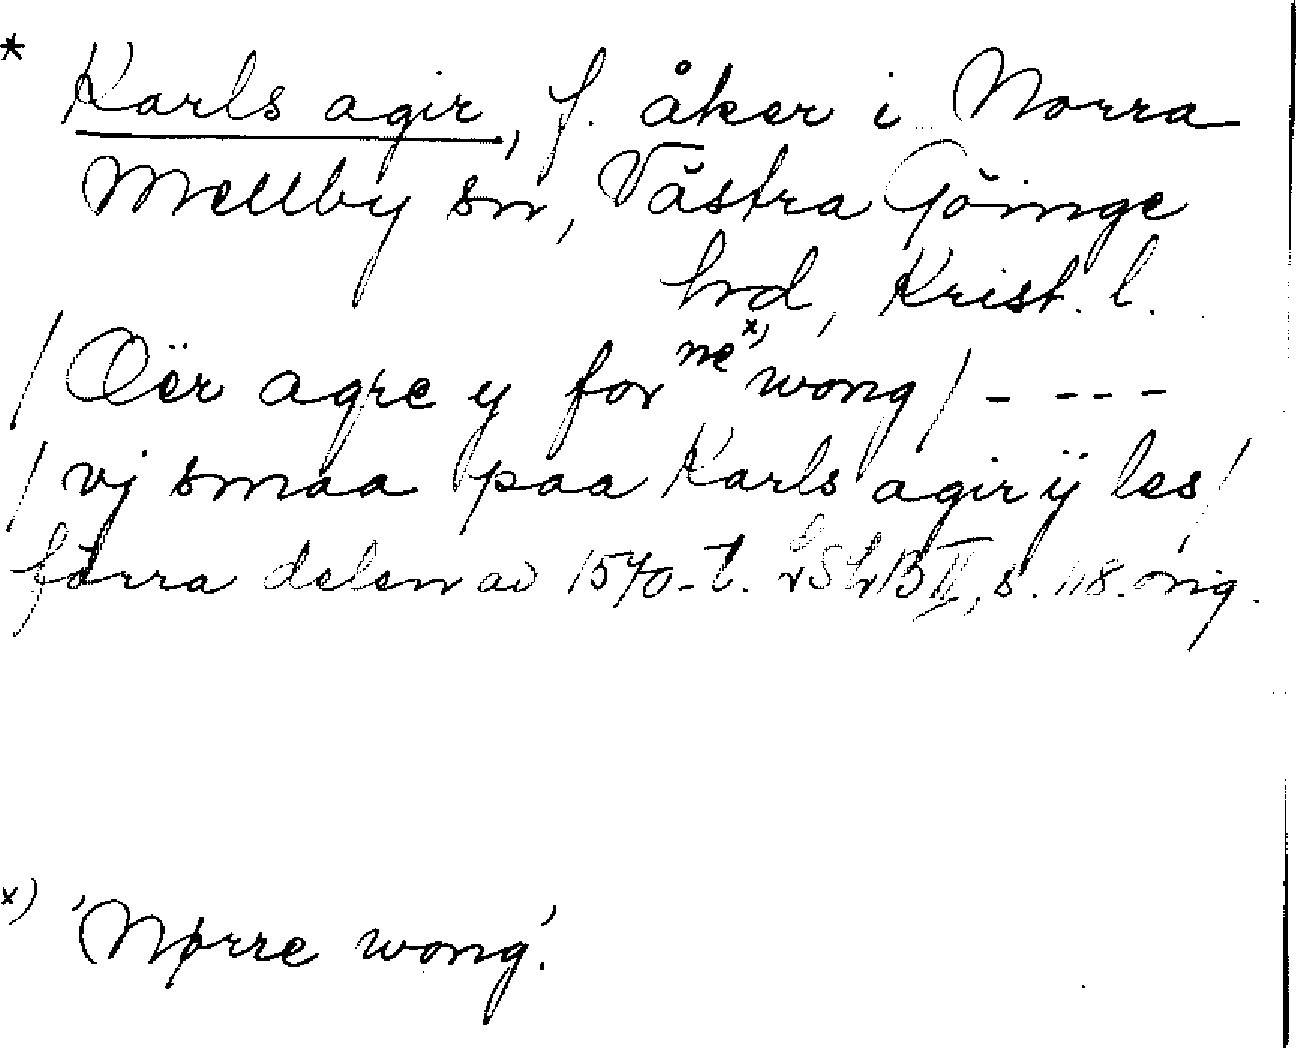 * Karls agir, f. åker i Norra
Mellby sn, Västra Göinge
hd, Krist. l.
/ Öër agre y for ne x) wong / - - - -
/ vj smaa paa Karls agir ij les /
förra delen av 1570-t. LSkB II, s. 118. orig.
x) 'Nørre wong'.